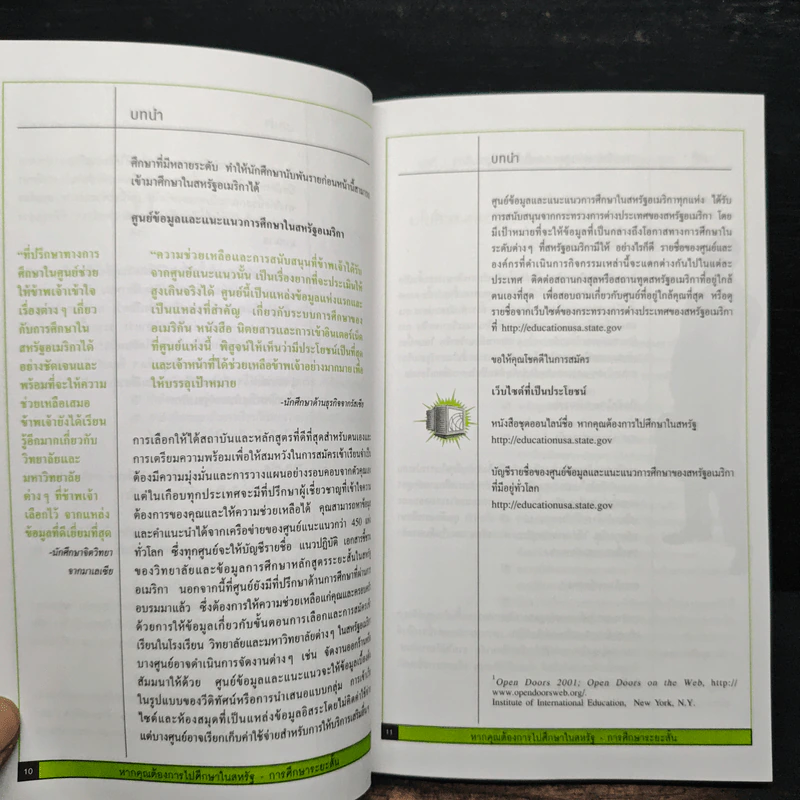 บทนำ
ศึกษาที่มีหลายระดับ ทำให้นักศึกษานับพันรายก่อนหน้านี้สามารถ
เข้ามาศึกษาในสหรัฐอเมริกาได้
ศูนย์ข้อมูลและแนะแนวการศึกษาในสหรัฐอเมริกา
"ที่ปรึกษาทางการ
ศึกษาในศูนย์ช่วย
ให้ข้าพเจ้าเข้าใจ
เรื่องต่างๆ เกี่ยว
กับการศึกษาใน
สหรัฐอเมริกาได้
อย่างชัดเจนและ
พร้อมที่จะให้ความ
ช่วยเหลือเสมอ
ข้าพเจ้ายังได้เรียน
รู้อีกมากเกี่ยวกับ
วิทยาลัยและ
มหาวิทยาลัย
ต่างๆ ที่ข้าพเจ้า
เลือกไว้ จากแหล่ง
ข้อมูลที่ดีเยี่ยมที่สุด
-นักศึกษาจิตวิทยา
จากมาเลเซีย
"ความช่วยเหลือและการสนับสนุนที่ข้าพเจ้าได้รับ
จากศูนย์แนะแนวนั้น เป็นเรื่องยากที่จะประเมินให้
สูงเกินจริงได้ ศูนย์นี้เป็นแหล่งข้อมูลแห่งแรกและ
เป็นแหล่งที่สำคัญ เกี่ยวกับระบบการศึกษาของ
อเมริกัน หนังสือ นิตยสารและการเข้าอินเตอร์เน็ต
ที่ศูนย์แห่งนี้ พิสูจน์ให้เห็นว่ามีประโยชน์เป็นที่สุด
และเจ้าหน้าที่ได้ช่วยเหลือข้าพเจ้าอย่างมากมายเพื่อ
ให้บรรลุเป้าหมาย
-นักศึกษาด้านธุรกิจจากรัสเซีย
การเลือกให้ได้สถาบันและหลักสูตรที่ดีที่สุดสำหรับตนเองและ
การเตรียมความพร้อมเพื่อให้สมหวังในการสมัครเข้าเรียนจำเป็น
ต้องมีความมุ่งมั่นและการวางแผนอย่างรอบคอบจากตัวคุณเอง
แต่ในเกือบทุกประเทศจะมีที่ปรึกษาผู้เชี่ยวชาญที่เข้าใจความ
ต้องการของคุณและให้ความช่วยเหลือได้ คุณสามารถหาข้อมูล
และคำแนะนำได้จากเครือข่ายของศูนย์แนะแนวกว่า 450 แห่ง
ทั่วโลก ซึ่งทุกศูนย์จะให้บัญชีรายชื่อ แนวปฏิบัติ เอกสารชี้ชวน
ของวิทยาลัยและข้อมูลการศึกษาหลักสูตรระยะสั้นในสหรัฐ
อเมริกา นอกจากนี้ที่ศูนย์ยังมีที่ปรึกษาด้านการศึกษาที่ผ่านการ
อบรมมาแล้ว ซึ่งต้องการให้ความช่วยเหลือแก่คุณและครอบครัว
ด้วยการให้ข้อมูลเกี่ยวกับขั้นตอนการเลือกและการสมัครเข้า
เรียนในโรงเรียน วิทยาลัยและมหาวิทยาลัยต่างๆ ในสหรัฐอเมริกา
บางศูนย์อาจดำเนินการจัดงานต่างๆ เช่น จัดงานออกร้านหรือ
สัมมนาให้ด้วย ศูนย์ข้อมูลและแนะแนวจะให้ข้อมูลเบื้องต้น
ในรูปแบบของวีดิทัศน์หรือการนำเสนอแบบกลุ่ม การเข้าเว็บ
ไซต์และห้องสมุดที่เป็นแหล่งข้อมูลอิสระโดยไม่คิดค่าใช้จ่าย
แต่บางศูนย์อาจเรียกเก็บค่าใช้จ่ายสำหรับการให้บริการเสริมอื่นๆ
10 หากคุณต้องการไปศึกษาในสหรัฐ - การศึกษาระยะสั้น
บทนำ
ศูนย์ข้อมูลและแนะแนวการศึกษาในสหรัฐอเมริกาทุกแห่ง ได้รับ
การสนับสนุนจากกระทรวงการต่างประเทศของสหรัฐอเมริกา โดย
มีเป้าหมายที่จะให้ข้อมูลที่เป็นกลางถึงโอกาสทางการศึกษาใน
ระดับต่างๆ ที่สหรัฐอเมริกามีให้ อย่างไรก็ดี รายชื่อของศูนย์และ
องค์กรที่ดำเนินการกิจกรรมเหล่านี้จะแตกต่างกันไปในแต่ละ
ประเทศ ติดต่อสถานกงสุลหรือสถานทูตสหรัฐอเมริกาที่อยู่ใกล้
ตนเองที่สุด เพื่อสอบถามเกี่ยวกับศูนย์ที่อยู่ใกล้คุณที่สุด หรือดู
รายชื่อจากเว็บไซต์ของกระทรวงการต่างประเทศของสหรัฐอเมริกา
ที่ http://educationusa.state.gov
ขอให้คุณโชคดีในการสมัคร
เว็บไซต์ที่เป็นประโยชน์
หนังสือชุดออนไลน์ชื่อ หากคุณต้องการไปศึกษาในสหรัฐ
http://educationusa.state.gov
บัญชีรายชื่อของศูนย์ข้อมูลและแนะแนวการศึกษาของสหรัฐอเมริกา
ที่มีอยู่ทั่วโลก
http://educationusa.state.gov
1 Open Doors 2001; Open Doors on the Web, http://
www.opendoorsweb.org/.
Institute of International Education, New York, N.Y.
11 หากคุณต้องการไปศึกษาในสหรัฐ - การศึกษาระยะสั้น